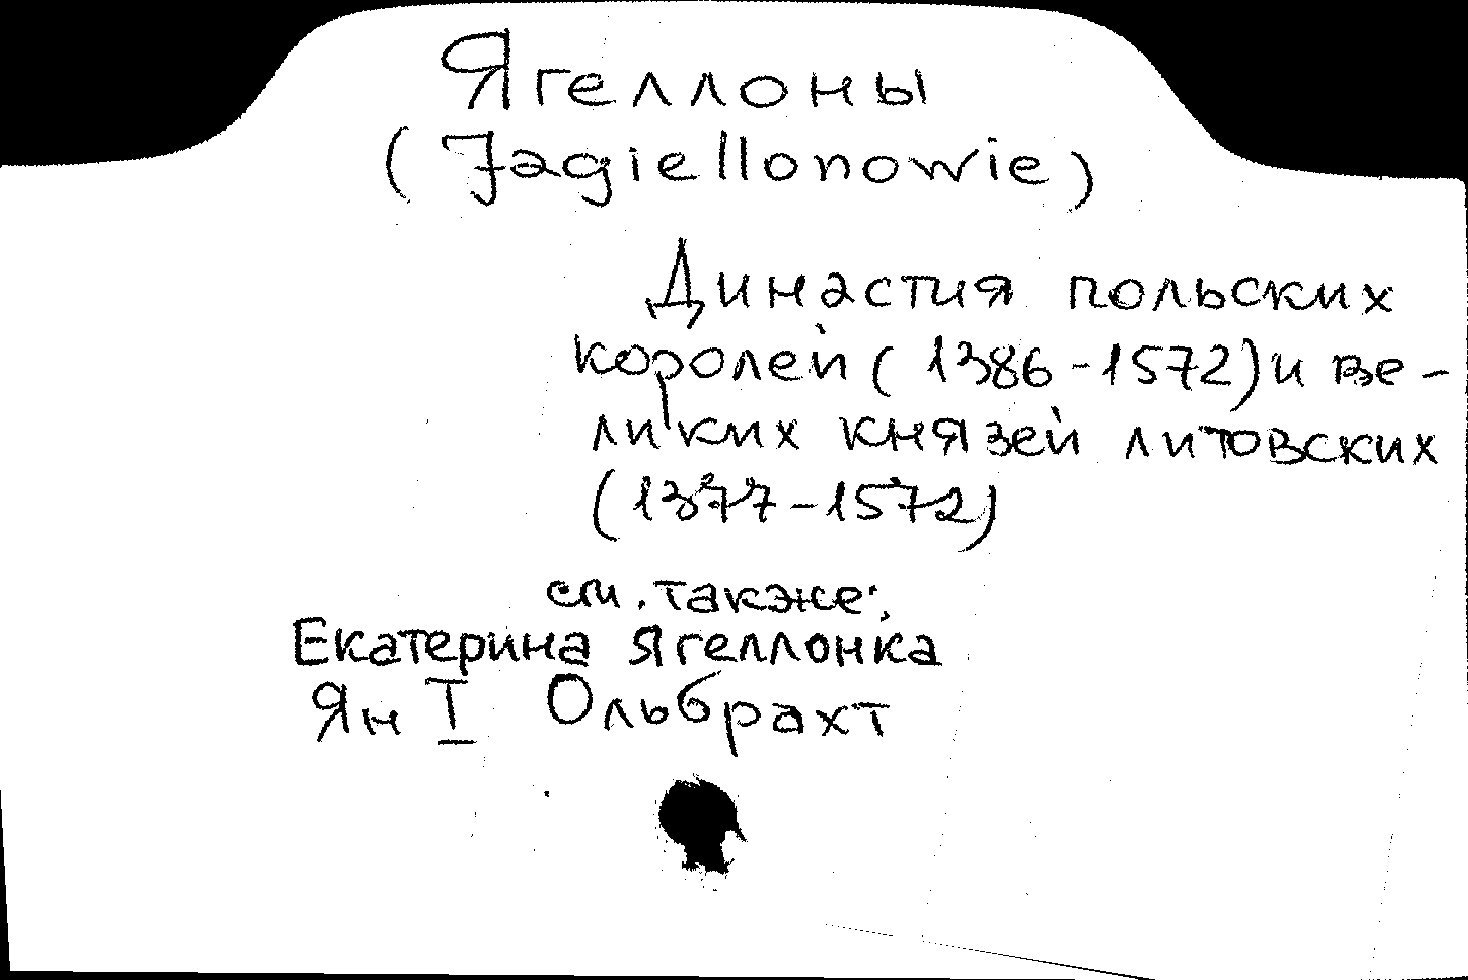 Ягеллоны
(Jagiellonowie)
Династия польских
королей (1386-1572) и ве-
ликих князей литовских
(1377-1572)
см. также:
Екатерина Ягеллонка
Ян I Ольбрахт